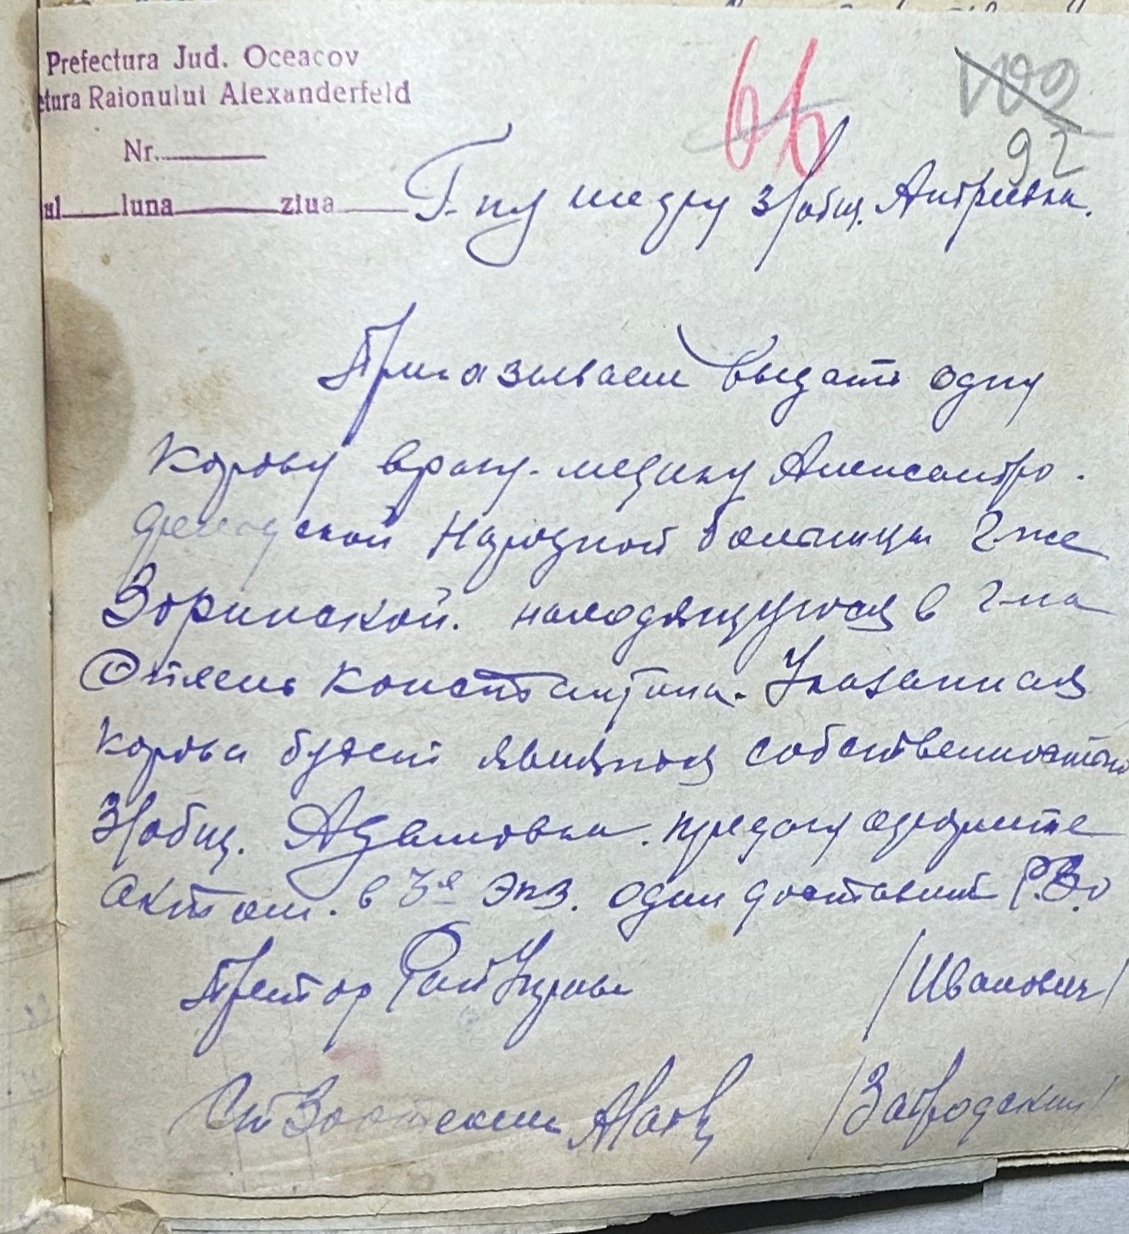 Prefectura Jud. Oceacov
tura Raionului Alexanderfeld
66
109
92
Nr.
ul luna ziua
Г-ну шефу з/общ. Антриевка.
Приказываем выдать одну
корову врачу-медику Александро-
фельдской Народной больницы г-же
Зоринской. находящуюся в г-на
Отлень Константина. Указанная
корова будет являтся собственностью
З/общ. Адамовка. передачу оформите
актом. в 3х экз. один доставить Р.З.О
Претор Рай Управы /Иванович/
Ст Зоотехник /Завродский/